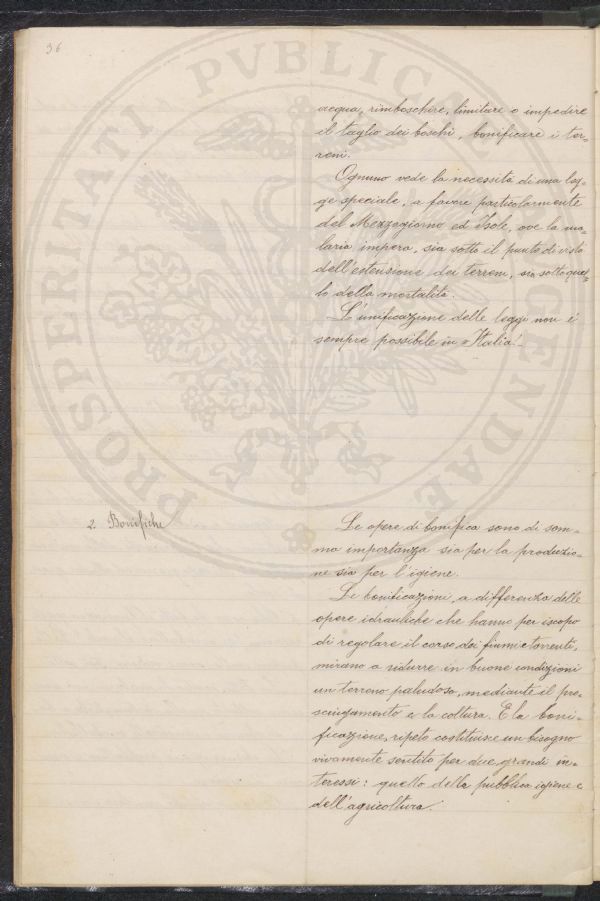 36
PROSPERITATI PVBLICAE AVGENDAE
acqua, rimboschire, limitare o impedire
il taglio dei boschi, bonificare i ter-
reni.
Ognuno vede la necessità di una leg-
ge speciale, a favore particolarmente
del Mezzogiorno ed Isole, ove la ma-
laria impera, sia sotto il punto di vista
dell'estensione dei terreni, sia sotto quel-
lo della mortalità.
L'unificazione delle leggi non è
sempre possibile in Italia!
2. Bonifiche
Le opere di bonifica sono di som-
ma importanza sia per la produzio-
ne sia per l'igiene.
Le bonificazioni, a differenza delle
opere idrauliche che hanno per iscopo
di regolare il corso dei fiumi e torrenti,
mirano a ridurre in buone condizioni
un terreno paludoso, mediante il pro-
sciugamento e la coltura. E la boni-
ficazione, ripeto costituisce un bisogno
vivamente sentito per due grandi in-
teressi: quello della pubblica igiene e
dell'agricoltura.